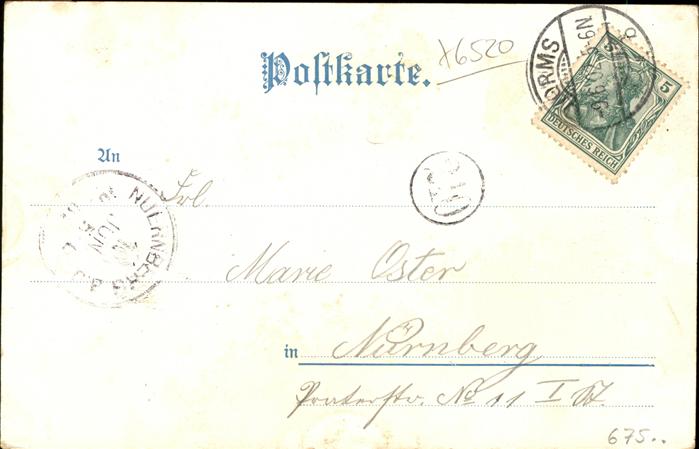 Postkarte.
x6520
WORMS
5-6N
5
DEUTSCHES REICH
An
Frl.
NUERNBERG
JUN
Marie Oster
in Nürnberg
Praterstr. No 11 I St.
675..